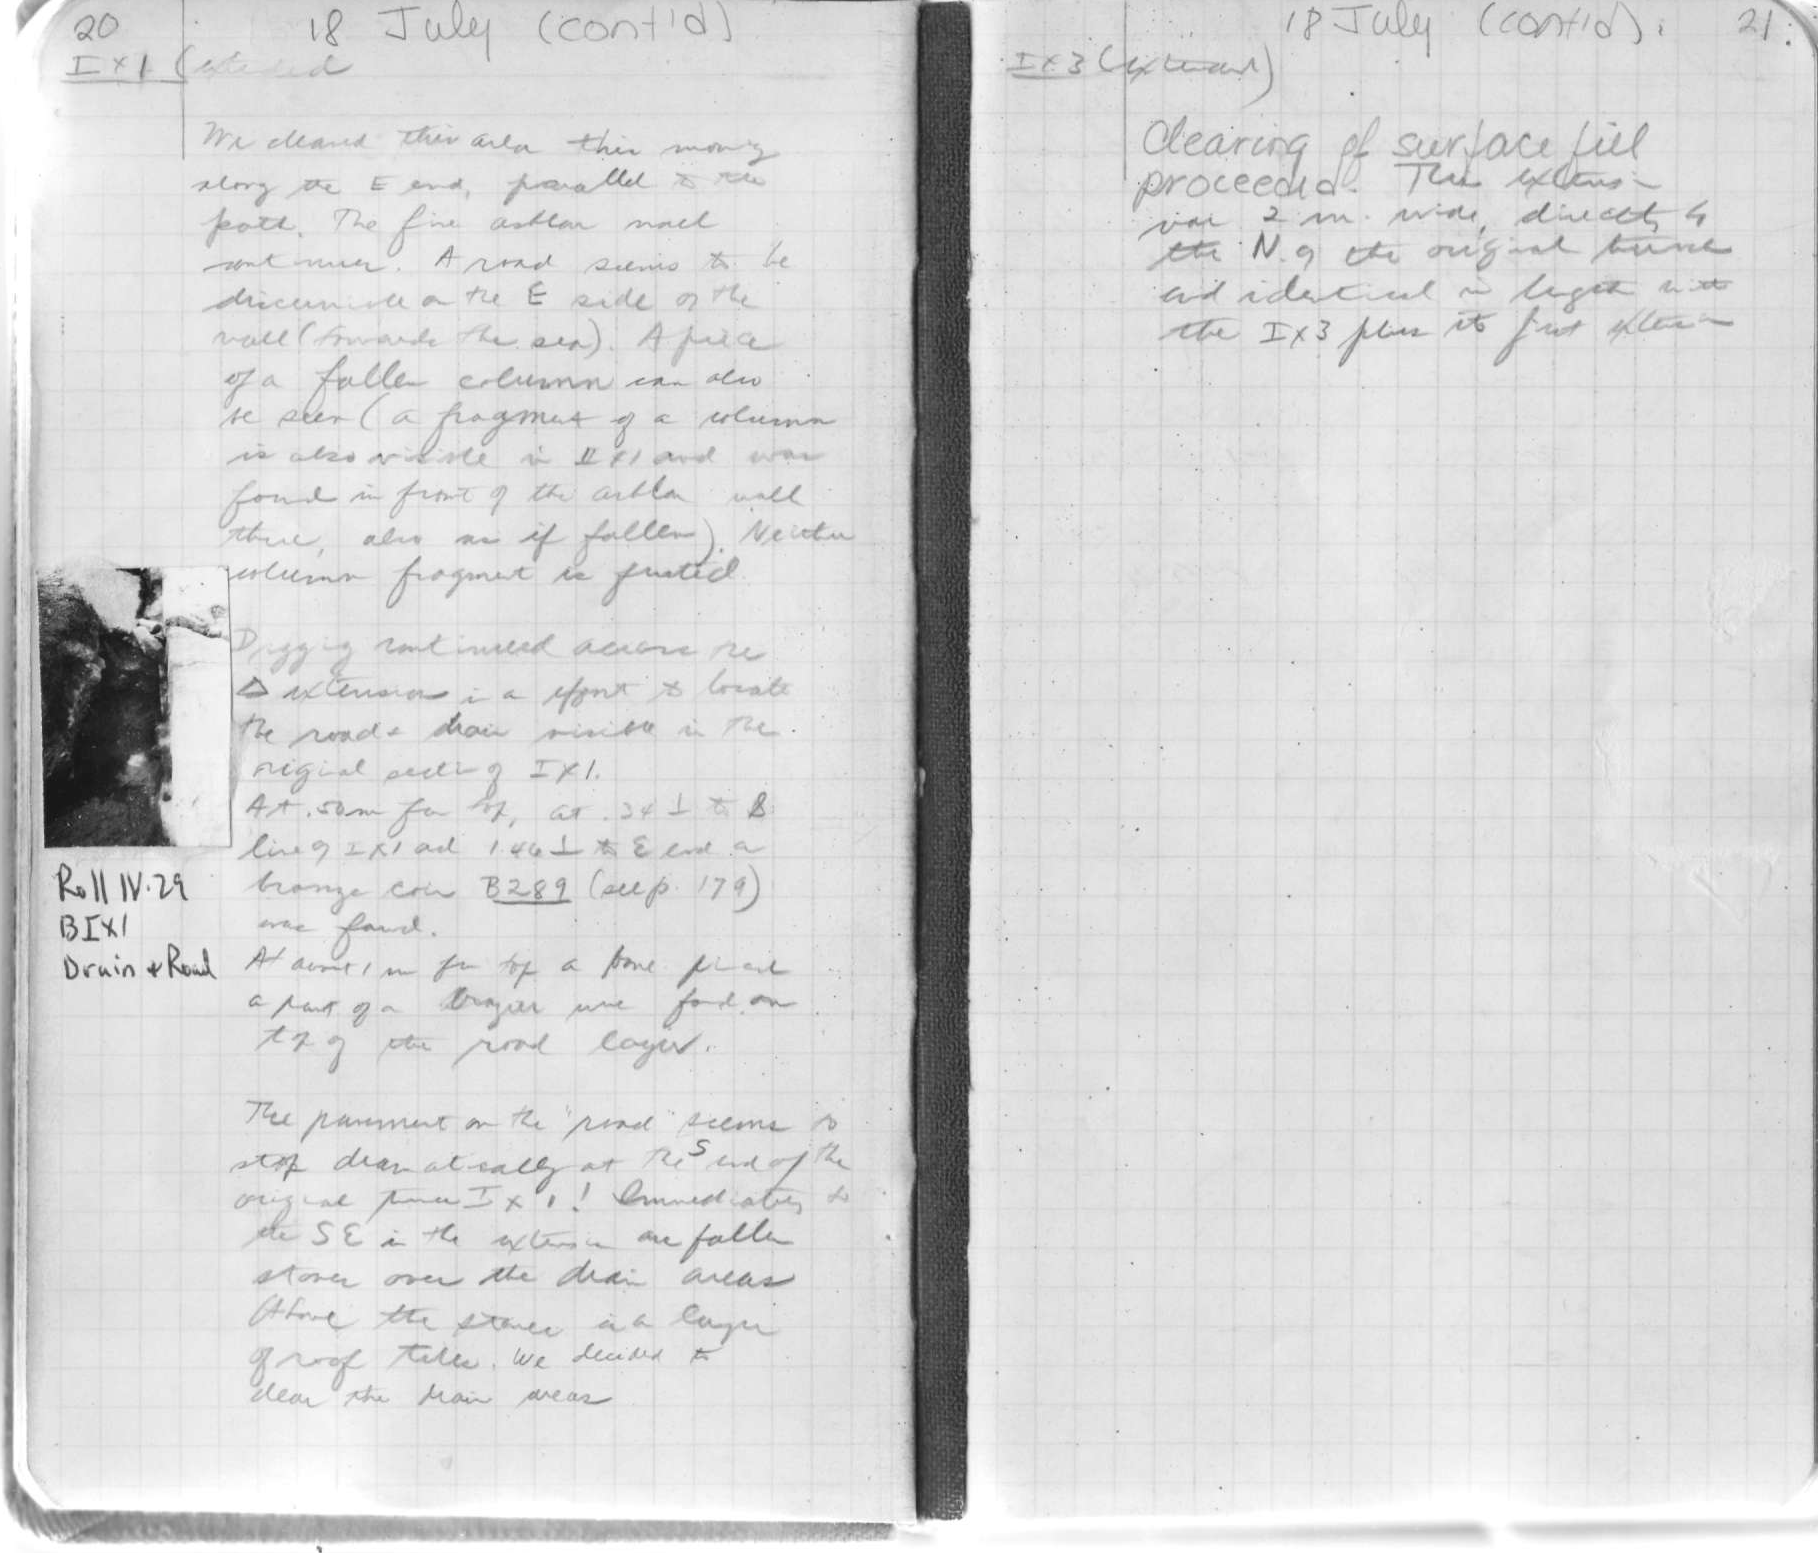 20 18 July (cont'd)
IX1 (extended
We cleared this area this morning
along the E end, parallel to the
path. The fine ashlar wall
continues. A road seems to be
discernible on the E side of the
wall (towards the sea). A piece
of a fallen column can also
be seen (a fragment of a column
is also visible in IIX1 and was
found in front of the ashlar wall
there, also as if fallen). Neither
column fragment is fluted
Digging continued across the
Δ extension in a effort to locate
the road + drain visible in the
original section of IX1.
At .50m from top, at .34 ⊥ to B
line of IX1 and 1.46 ⊥ to E end a
bronze coin B289 (see p. 179)
was found.
At about 1 m from top a bone
a part of a brazier were found on
top of the road layer.
Roll IV.29
BIX1
Drain + Road
The pavement on the "road" seems to
stop dramatically at the S end of the
original trench IX1! Immediately to
the SE in the extension are fallen
stones over the drain areas
Above the stones is a layer
of roof tiles. We decided to
clear the drain areas
18 July (cont'd). 21.
IX3 (extension)
Clearing of surface fill
proceeded. This extension
was 2 m. wide, directly to
the N. of the original trench
and identical in length with
the IX3 plus its first extension